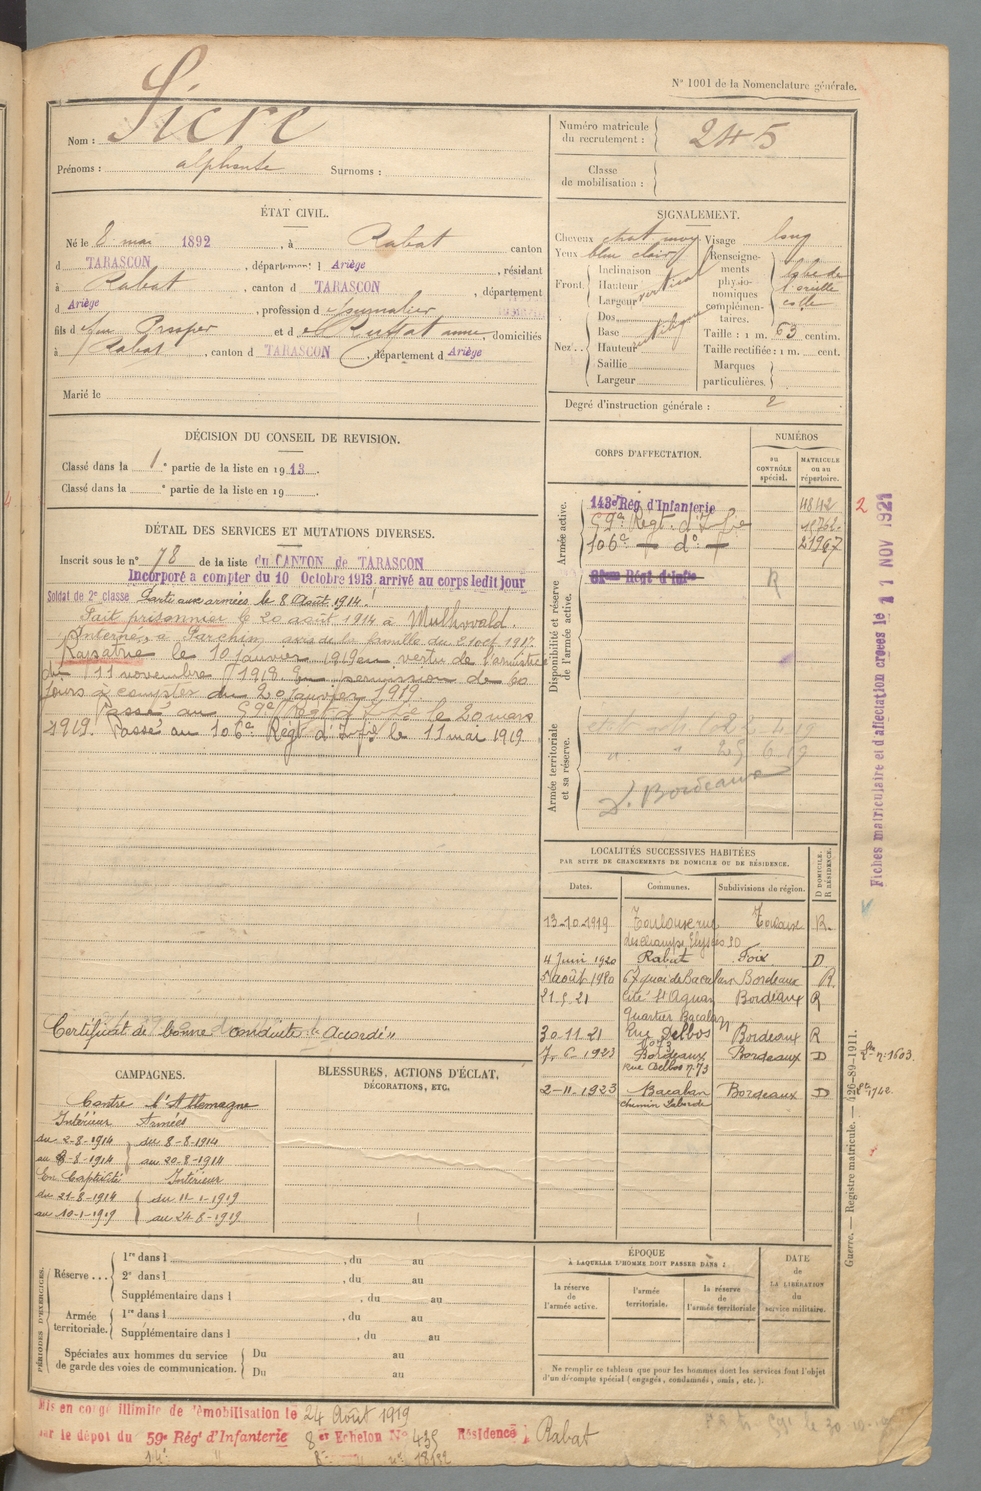 N° 1001 de la Nomenclature générale.
Nom : Sicre
Prénoms : alphonse Surnoms :
Numéro matricule du recrutement : 245
Classe de mobilisation :
ÉTAT CIVIL.
Né le 8 mai 1892, à Rabat canton
d TARASCON, département d Ariège, résidant
à Rabat, canton d TARASCON, département
d Ariège, profession d
fils d Prosper et d anne, domiciliés
à Rabat, canton d TARASCON, département d Ariège
Marié le
SIGNALEMENT.
Cheveux chat moy Visage long
Yeux bleu clair
Front Inclinaison vertical
Hauteur
Largeur
Nez Dos
Base
Hauteur
Saillie
Largeur
Renseignements physionomiques complémentaires. lobe de l'oreille collé
Taille : 1 m. 63 centim.
Taille rectifiée : 1 m. cent.
Marques particulières.
Degré d'instruction générale : 2
DÉCISION DU CONSEIL DE REVISION.
Classé dans la 1e partie de la liste en 1913.
Classé dans la e partie de la liste en 19
CORPS D'AFFECTATION.
NUMÉROS
au CONTRÔLE spécial.
MATRICULE ou au répertoire.
Armée active.
143e Rég d'Infanterie 4842
59e Regt d'Infie
106e — d° — 21967
Disponibilité et réserve de l'armée active.
R
Armée territoriale et sa réserve.
D. Bordeaux
DÉTAIL DES SERVICES ET MUTATIONS DIVERSES.
Inscrit sous le n° 78 de la liste du CANTON de TARASCON
Incorporé à compter du 10 Octobre 1913 arrivé au corps ledit jour
Soldat de 2e classe Parti aux armées le 8 Août 1914.
Fait prisonnier le 20 août 1914 à Mulhovald.
Interné à Parchim avis de la famille du 2 oct. 1917.
Rapatrié le 10 janvier 1919 en vertu de l'armistice
du 11 novembre 1918. En permission de 60
jours à compter du 20 janvier 1919.
Passé au 59e Regt d'Infie le 20 mars
1919. Passé au 106e Régt d'Infie le 11 mai 1919.
Certificat de bonne conduite "Accordé"
LOCALITÉS SUCCESSIVES HABITÉES
PAR SUITE DE CHANGEMENTS DE DOMICILE OU DE RÉSIDENCE.
Dates. Communes. Subdivisions de région. D DOMICILE. R RÉSIDENCE.
13-10-1919 Toulouse rue des champs Elysées 10 Toulouse R.
4 Juin 1920 Rabat Foix D
5 août 1920 67 quai de Bacalan Bordeaux R.
21-5-21 Cité St Aguan Quartier Bacalan Bordeaux R
30-11-21 Rue Delbos N° 73 Bordeaux R
7-6-1923 Bordeaux rue Delbos n° 73 Bordeaux D
2-11-1923 Bacalan chemin Labarde Bordeaux D
CAMPAGNES.
Contre l'Allemagne
Intérieur Armées
du 2-8-1914 du 8-8-1914
au 8-8-1914 au 20-8-1914
En Captivité Intérieur
du 21-8-1914 du 11-1-1919
au 10-1-1919 au 24-8-1919
BLESSURES, ACTIONS D'ÉCLAT,
DÉCORATIONS, ETC.
PÉRIODES D'EXERCICES.
Réserve 1re dans l , du au
2e dans l , du au
Supplémentaire dans l , du au
Armée territoriale. 1re dans l , du au
Supplémentaire dans l , du au
Spéciales aux hommes du service de garde des voies de communication. Du au
Du au
ÉPOQUE
À LAQUELLE L'HOMME DOIT PASSER DANS :
la réserve de l'armée active.
l'armée territoriale.
la réserve de l'armée territoriale
DATE de LA LIBÉRATION du service militaire.
Ne remplir ce tableau que pour les hommes dont les services font l'objet
d'un décompte spécial (engagés, condamnés, omis, etc.).
Mis en congé illimité de démobilisation le 24 Août 1919
par le dépôt du 59e Rég d'Infanterie 8e Echelon N° 435 Résidence : Rabat
Fiches matriculaire et d'affectation créées le 11 NOV 1921
Guerre. — Registre matricule. — 426-89-1911.